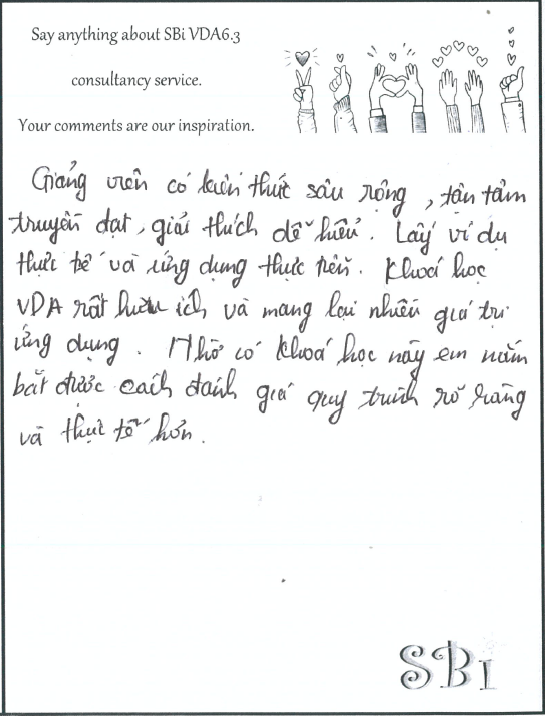 Say anything about SBi VDA6.3
consultancy service.
Your comments are our inspiration.
Giảng viên có kiến thức sâu rộng, tận tâm
truyền đạt, giải thích dễ hiểu. Lấy ví dụ
thực tế và ứng dụng thực tiễn. Khoá học
VDA rất hữu ích và mang lại nhiều giá trị
ứng dụng. Nhờ có khoá học này em nắm
bắt được cách đánh giá quy trình rõ ràng
và thực tế hơn.
SBi